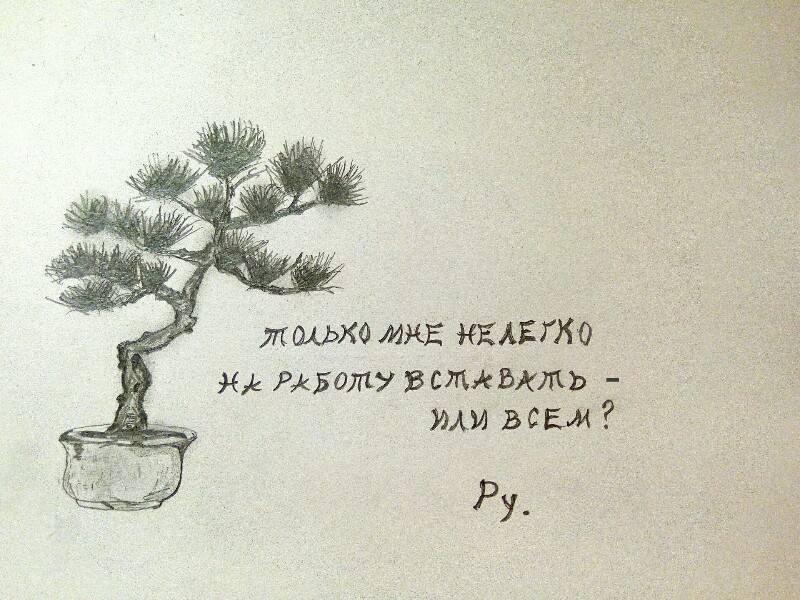 ТОЛЬКО МНЕ НЕЛЕГКО
НА РАБОТУ ВСТАВАТЬ –
ИЛИ ВСЕМ?
Ру.